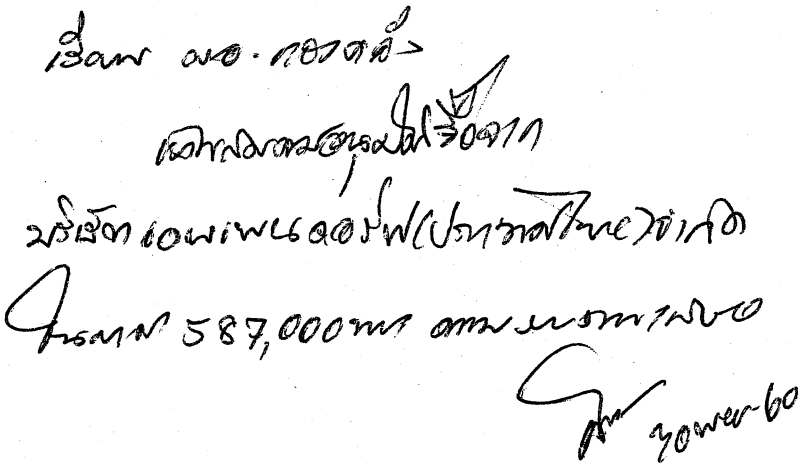 เรียน ผอ. กองคลัง
เห็นสมควรอนุมัติซื้อจาก
บริษัท เอพเพนดอร์ฟ (ประเทศไทย) จำกัด
ในราคา 587,000 บาท ตามที่เสนอ
30 พย. 60